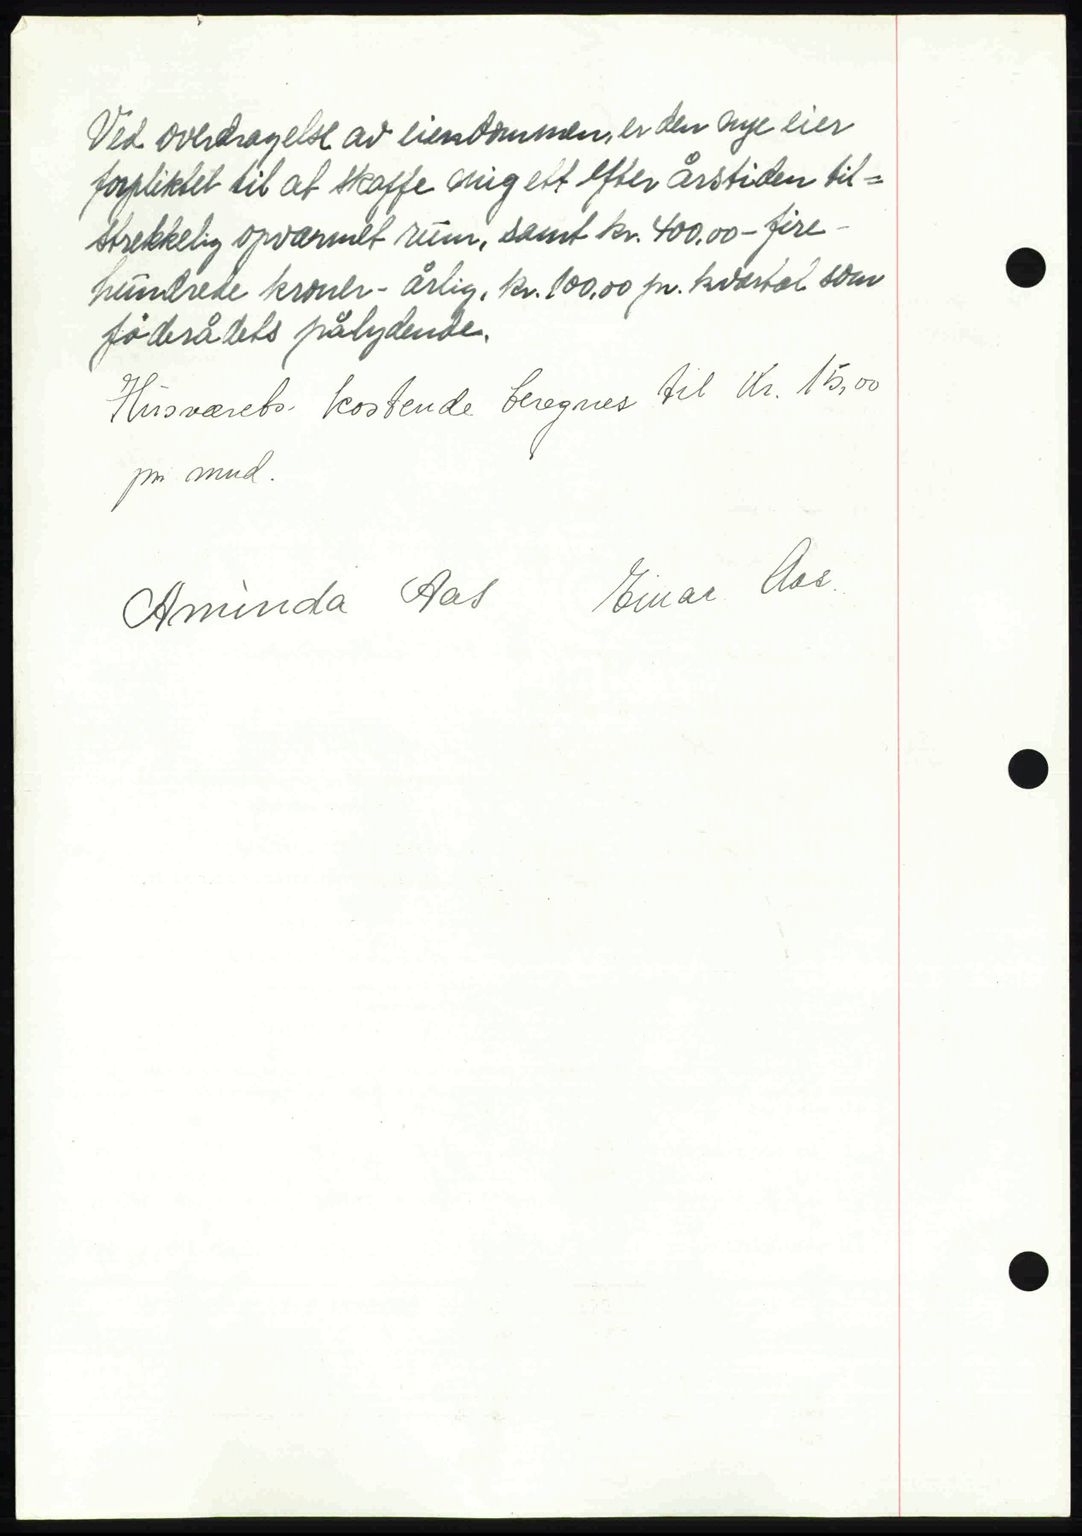 Ved overdragelse av eiendommen, er den nye eier
forpliktet til at skaffe mig ett efter årstiden til=
strekkelig opvarmet rum, samt kr. 400,00 - fire -
hundrede kroner - årlig, kr. 100,00 pr. kvartal som
föderådets pålydende.
Husværets kostende beregnes til Kr. 15,00
pr. mnd.
Aminda Aas Einar Aas.